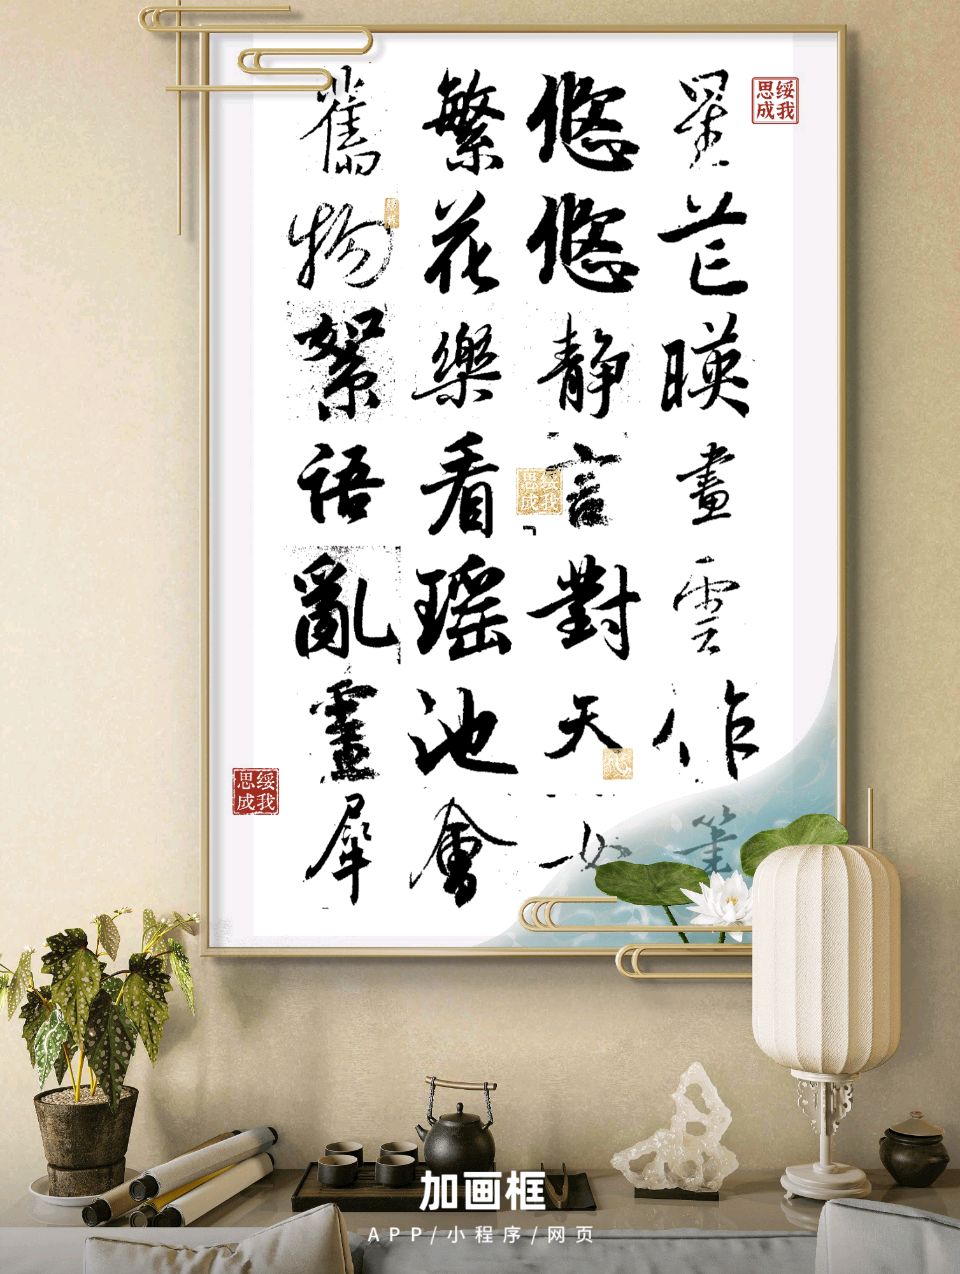 星芒暎畫雲作筆
悠悠静言對天女
繁花樂看瑶池會
舊物絮語亂靈犀
绥我思成
绥我思成
绥我思成
加画框
APP/小程序/网页